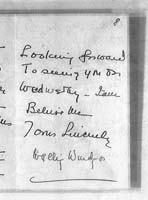 8
Looking forward
To seeing you on
Wednesday - I am
Believe Me
Yours Sincerely
Wallis Windsor